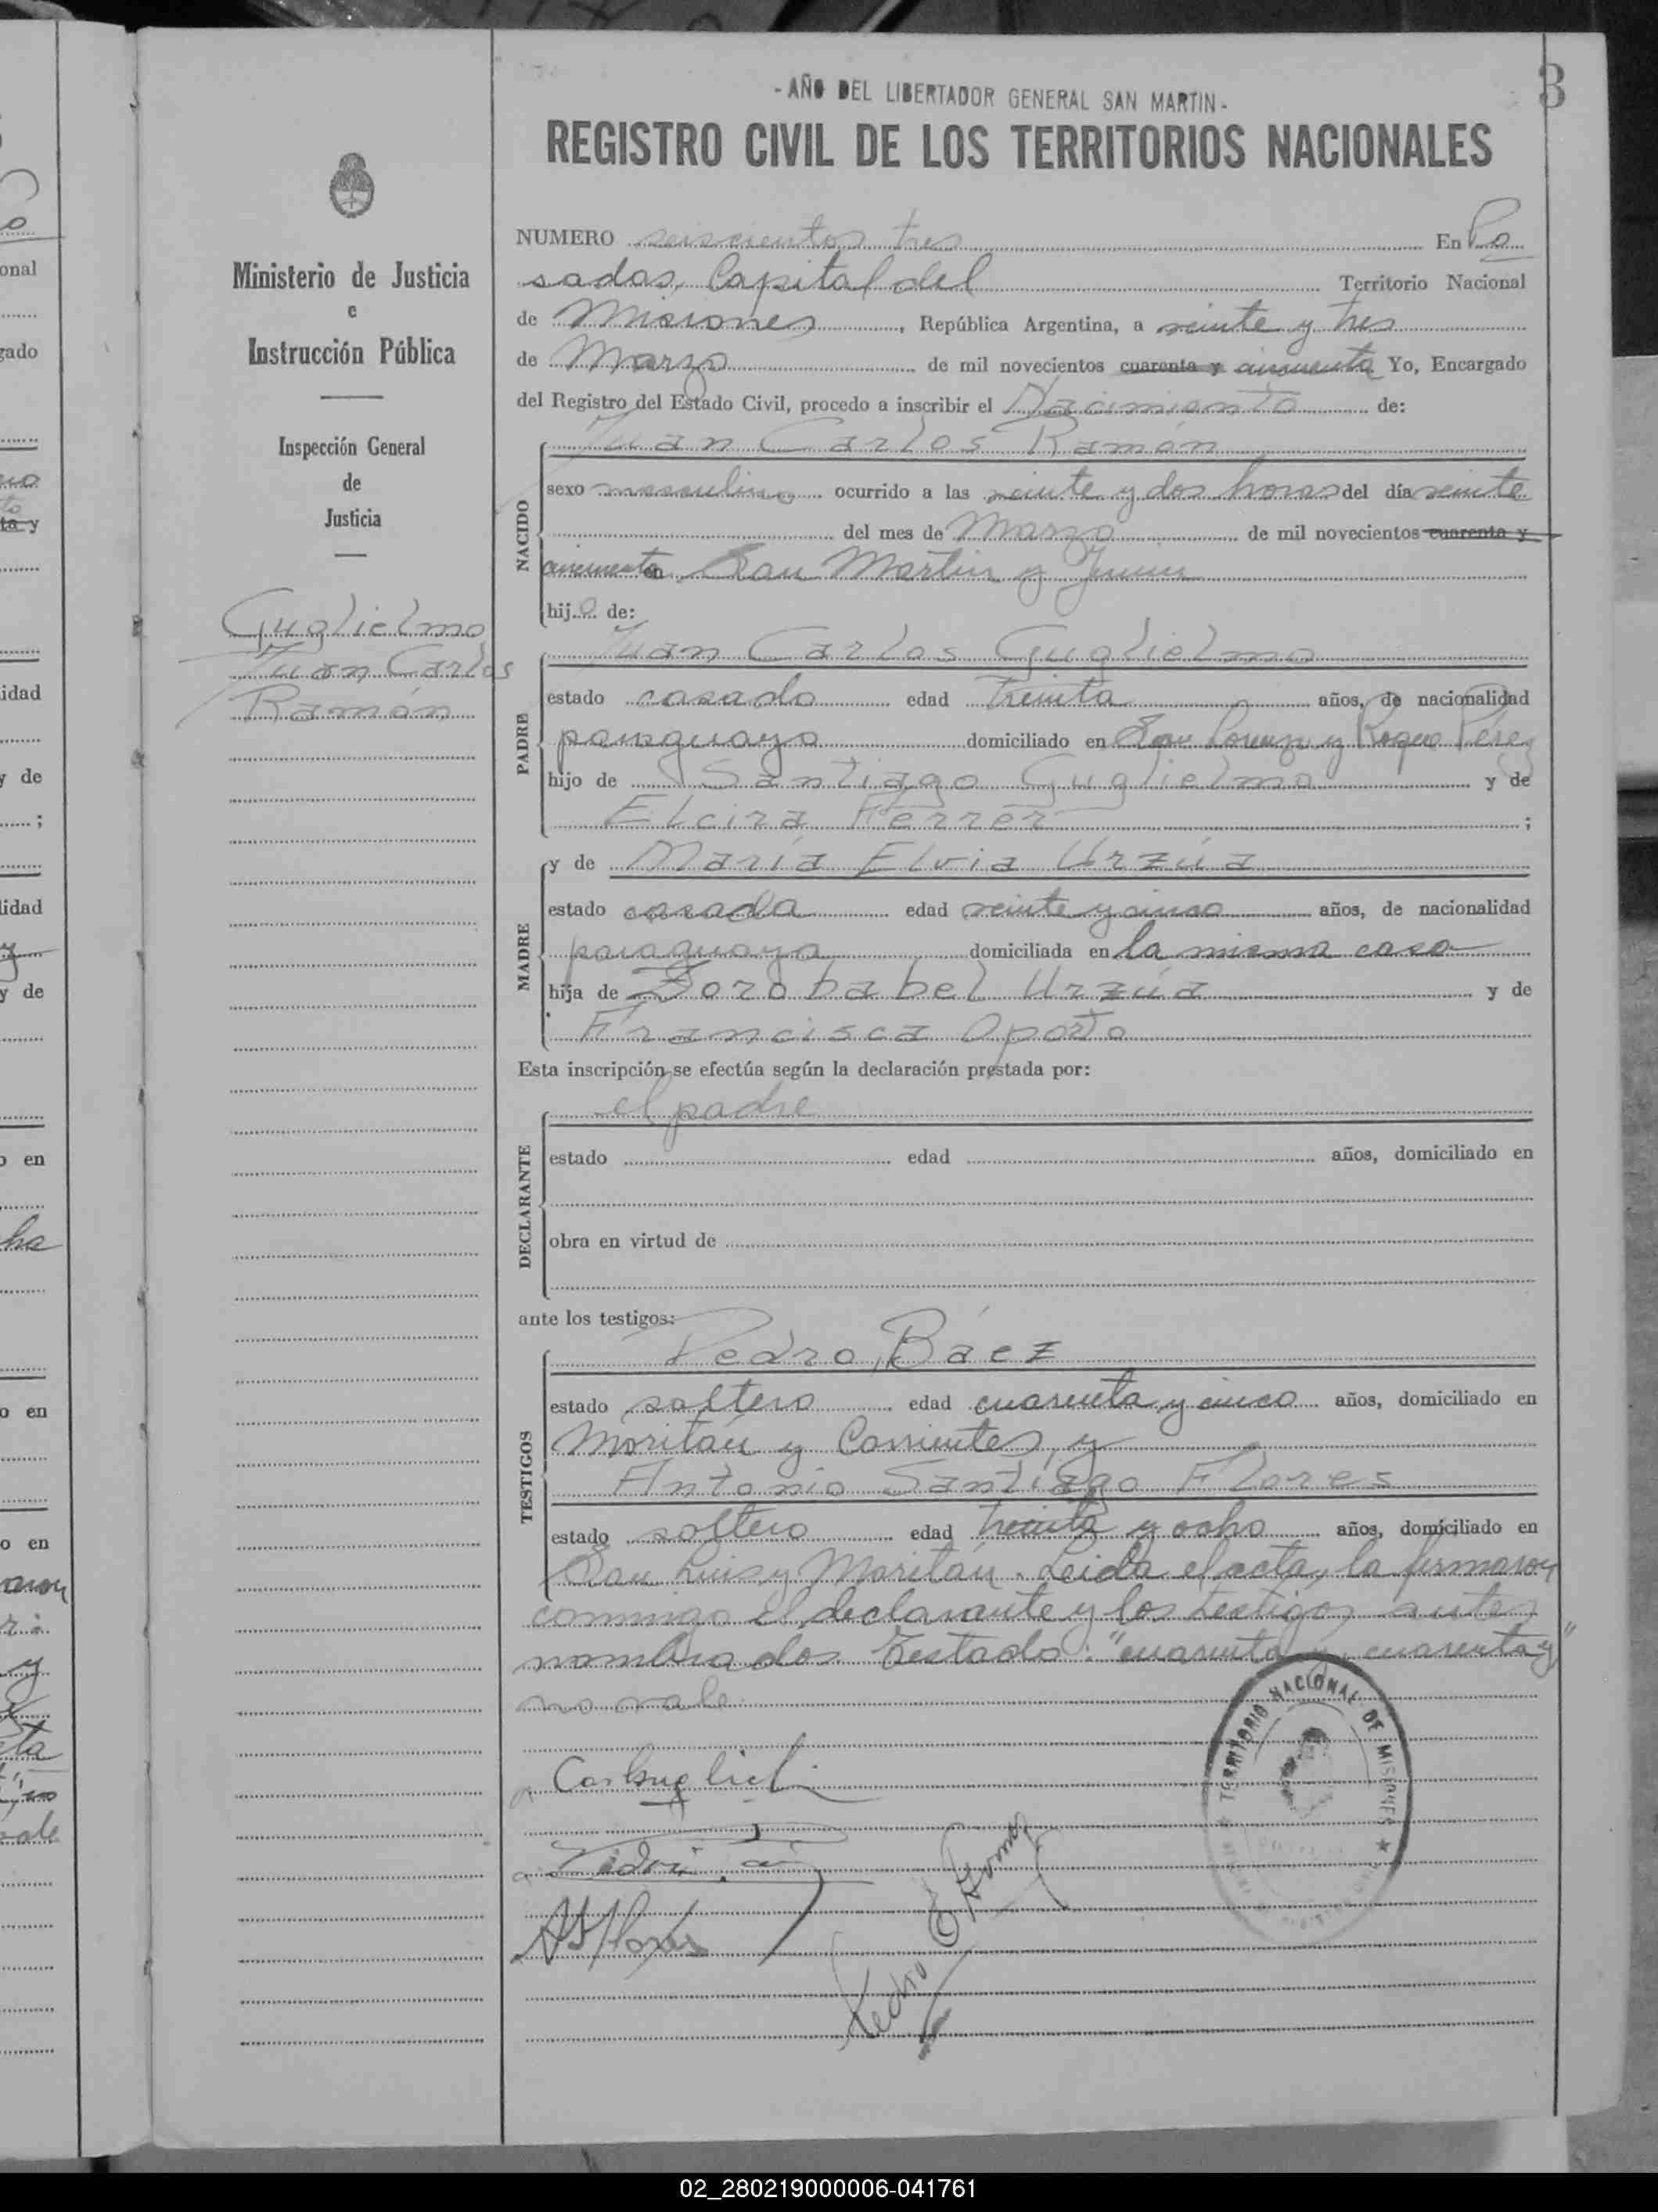 - AÑO DEL LIBERTADOR GENERAL SAN MARTIN -
3
REGISTRO CIVIL DE LOS TERRITORIOS NACIONALES
Ministerio de Justicia
e
Instrucción Pública
Inspección General
de
Justicia
Guglielmo
Juan Carlos
Ramón
NUMERO seiscientos tres En Po
sadas, Capital del Territorio Nacional
de Misiones, República Argentina, a veinte y tres
de Marzo de mil novecientos cuarenta y cincuenta Yo, Encargado
del Registro del Estado Civil, procedo a inscribir el Nacimiento de:
NACIDO
Juan Carlos Ramón
sexo masculino ocurrido a las veinte y dos horas del día veinte
del mes de Marzo de mil novecientos cuarenta y
cincuenta en San Martin y Junin
hijo de:
PADRE
Juan Carlos Guglielmo
estado casado edad treinta años, de nacionalidad
paraguaya domiciliado en San Lorenzo y Roque Pérez
hijo de Santiago Guglielmo y de
Elcira Ferrer ;
MADRE
y de María Elvia Urzúa
estado casada edad veinte y cinco años, de nacionalidad
paraguaya domiciliada en la misma casa
hija de Zorobabel Urzúa y de
Francisca Oporto
Esta inscripción se efectúa según la declaración prestada por:
DECLARANTE
el padre
estado edad años, domiciliado en
obra en virtud de
ante los testigos:
TESTIGOS
Pedro Báez
estado soltero edad cuarenta y cinco años, domiciliado en
Moritán y Corrientes, y
Antonio Santiago Flores
estado soltero edad treinta y ocho años, domiciliado en
San Luis y Moritán. Leida el acta, la firmaron
conmigo el declarante y los testigos antes
nombrados. Testado: "cuarenta y, cuarenta y"
no vale.
TERRITORIO NACIONAL DE MISIONES
ASFlores
Pedro
02_280219000006-041761